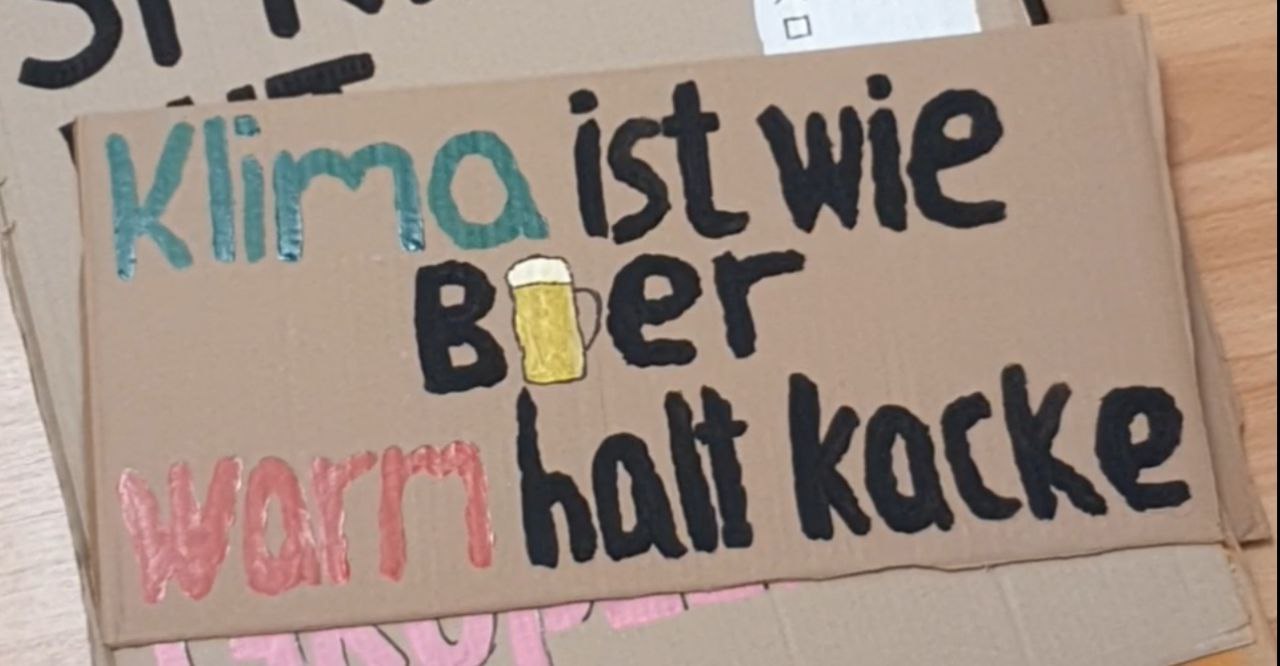 Klima ist wie
Bier
warm halt kacke